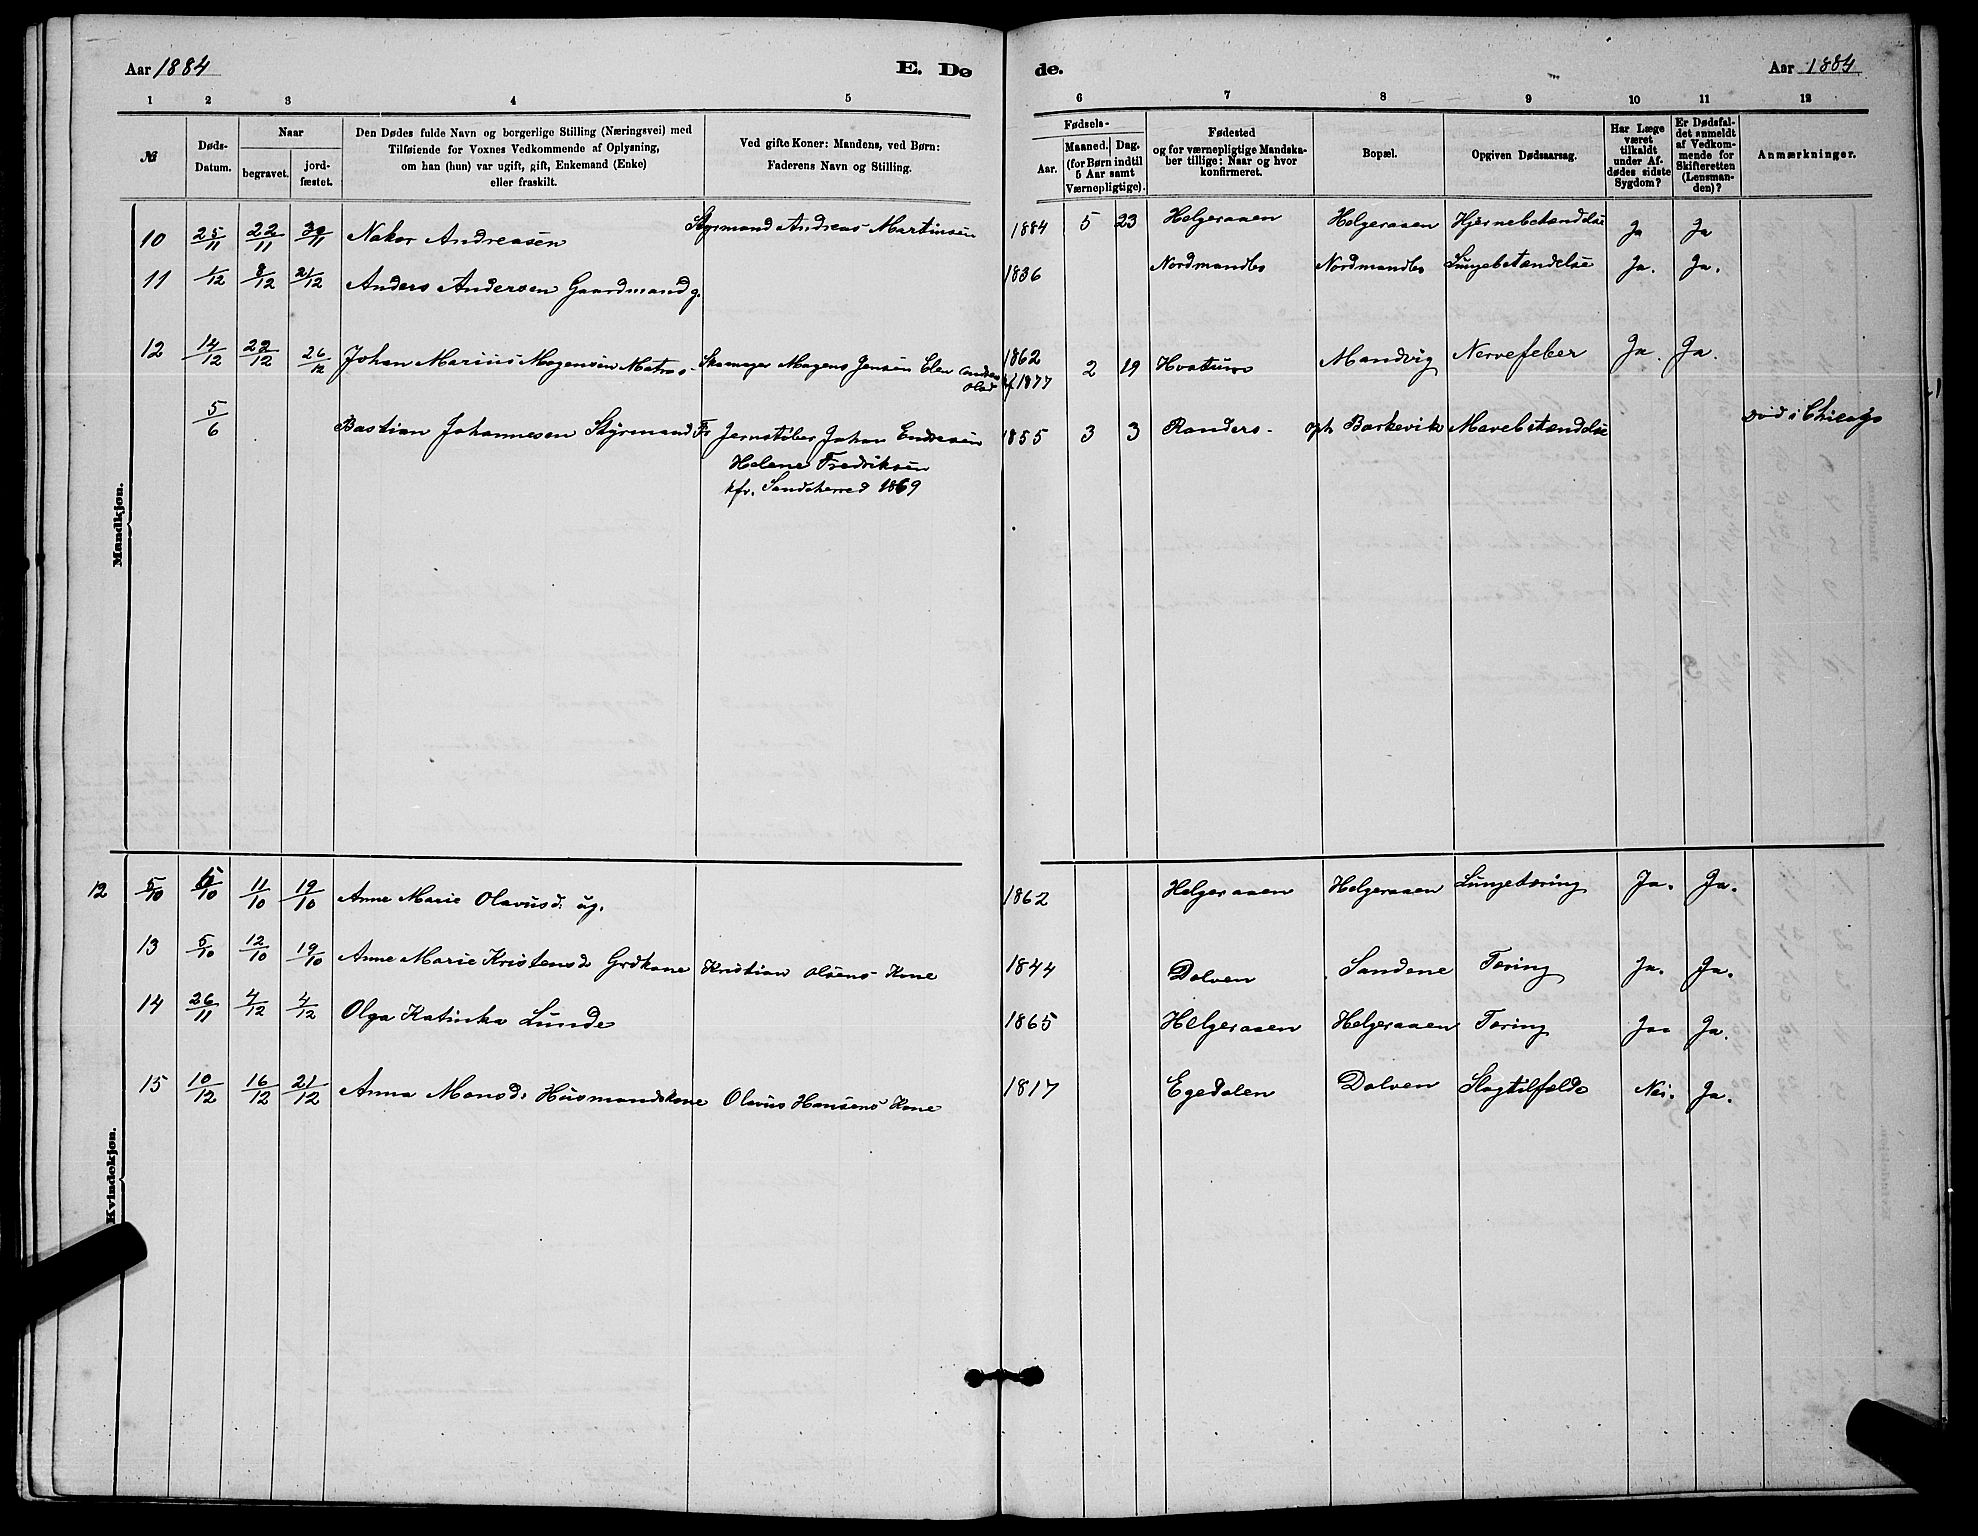 Aar 1884
E. Dø
de.
Aar 1884
1 2 3 4 5 6 7 8 9 10 11 12
№
Døds-
Datum.
Naar
begravet.
jord-
fæstet.
Den Dødes fulde Navn og borgerlige Stilling (Næringsvei) med
Tilføiende for Voxnes Vedkommende af Oplysning,
om han (hun) var ugift, gift, Enkemand (Enke)
eller fraskilt.
Ved gifte Koner: Mandens, ved Børn:
Faderens Navn og Stilling.
Fødsels-
Aar.
Maaned. Dag.
(for Børn indtil
5 Aar samt
Værnepligtige).
Fødested
og for værnepligtige Mandska-
ber tillige: Naar og hvor
konfirmeret.
Bopæl.
Opgiven Dødsaarsag.
Har Læge
været
tilkaldt
under Af-
dødes sidste
Sygdom?
Er Dødsfal-
det anmeldt
af Vedkom-
mende for
Skifteretten
(Lensman-
den)?
Anmærkninger.
Mandkjøn.
10 25/11 22/11 30/11 Nakor Andreasen Styrmand Andreas Martinsen 1884 5 23 Helgeraaen Helgeraaen Hjernebetændelse Ja Ja
11 1/12 8/12 21/12 Anders Andersen Gaardmand g. 1836 Nordmandbo Nordmandbo Lungebetændelse Ja. Ja.
12 14/12 22/12 26/12 Johan Marius Mogensen Matros Skomager Mogens Jensen Elen 1862 2 19 Hvatum Mandvig Nervefeber Ja. Ja.
kf 1877
5/6 Bastian Johannesen Styrmand Fr Jernstøber Johan Endresen 1855 3 3 Randers. oph Barkevik Mavebetændelse Død i Chicago
Helene Fredriksen
kfr. Sandeherred 1869
Kvindekjøn.
12 5/10 5/10 11/10 19/10 Anne Marie Olavusd: ug. 1862 Helgeraaen Helgeraaen Lungetæring Ja. Ja.
13 5/10 12/10 19/10 Anne Marie Kristensd Grdkone Kristian Olsens Kone 1844 Dolven Sandene Tæring Ja. Ja.
14 26/11 4/12 4/12 Olga Katinka Lunde 1865 Helgeraaen Helgeraaen Tæring Ja. Ja.
15 10/12 16/12 21/12 Anna Monsd: Husmandskone Olavus Hansens Kone 1817 Egedalen Dolven Slagtilfælde Nei. Ja.